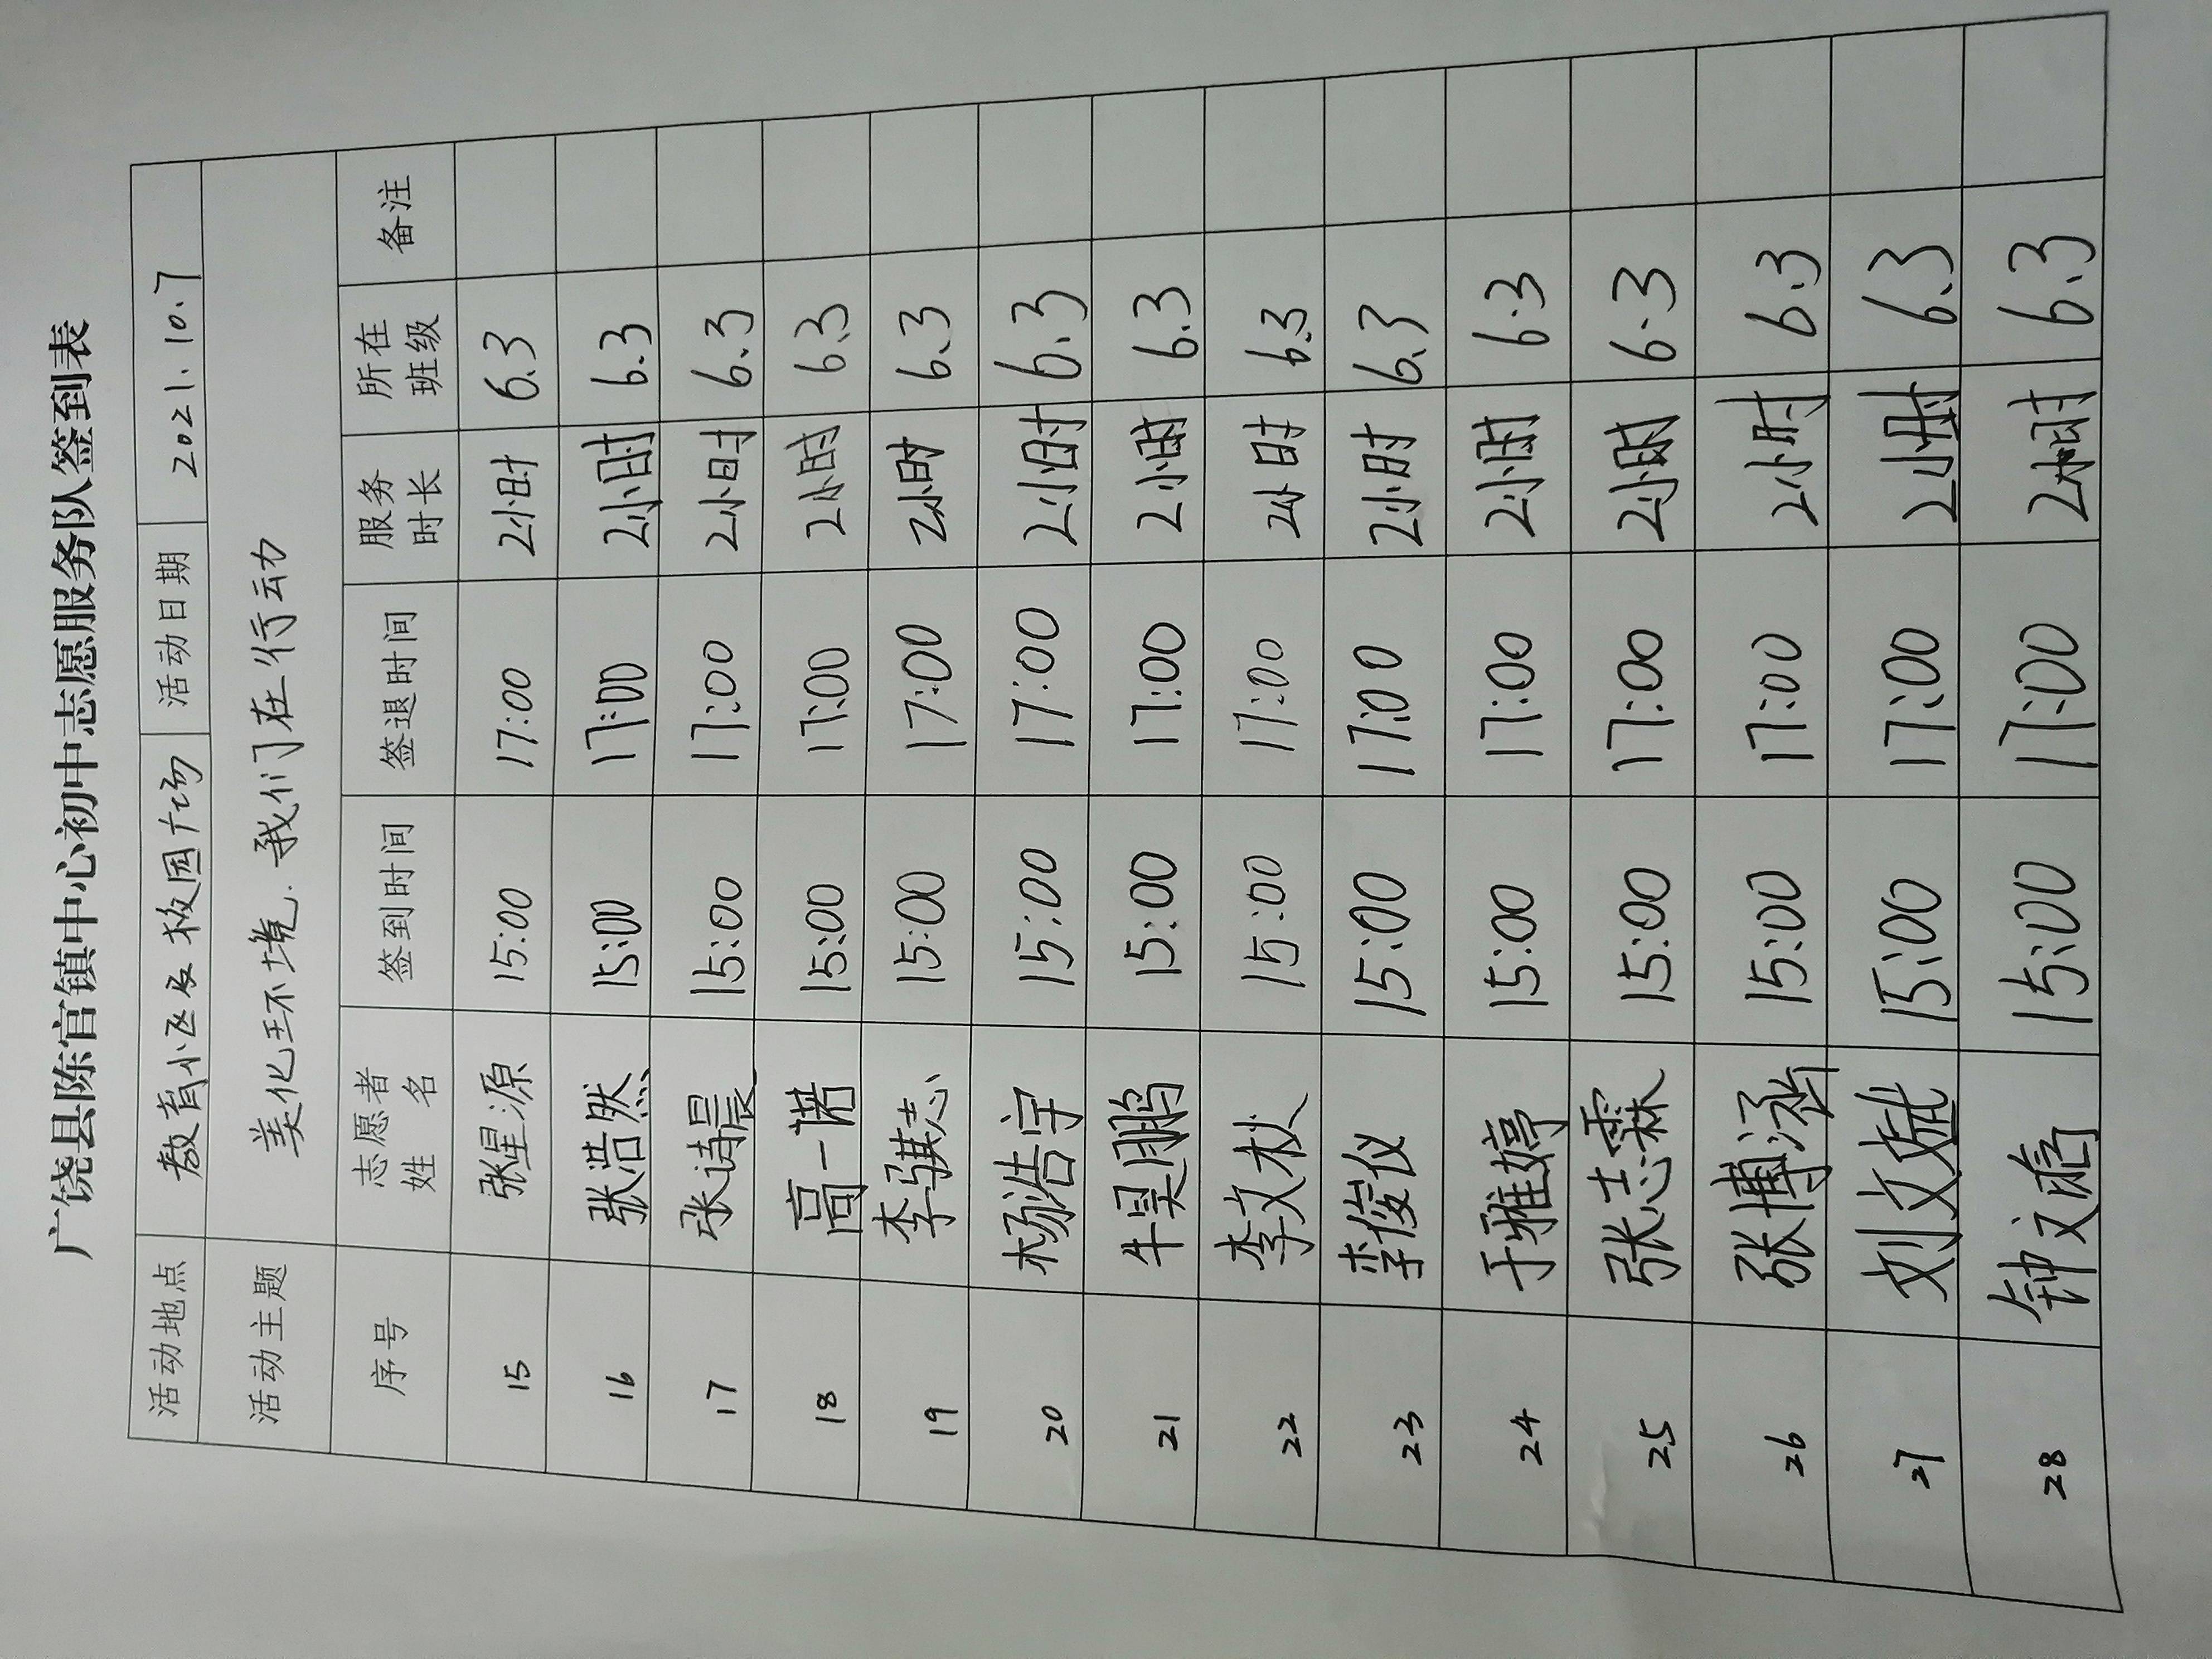 广饶县陈官镇中心初中志愿服务队签到表
活动地点 教育小区及校园广场 活动日期 2021.10.7
活动主题 美化环境.我们在行动
序号 志愿者姓名 签到时间 签退时间 服务时长 所在班级 备注
15 张星源 15:00 17:00 2小时 6.3
16 张浩然 15:00 17:00 2小时 6.3
17 张诗晨 15:00 17:00 2小时 6.3
18 高一诺 15:00 17:00 2小时 6.3
19 李骐志 15:00 17:00 2小时 6.3
20 杨浩宇 15:00 17:00 2小时 6.3
21 牛昊鹏 15:00 17:00 2小时 6.3
22 李文杕 15:00 17:00 2小时 6.3
23 李俊仪 15:00 17:00 2小时 6.3
24 于雅婷 15:00 17:00 2小时 6.3
25 张志霖 15:00 17:00 2小时 6.3
26 张博涵 15:00 17:00 2小时 6.3
27 刘文 15:00 17:00 2小时 6.3
28 钟文 15:00 17:00 2小时 6.3